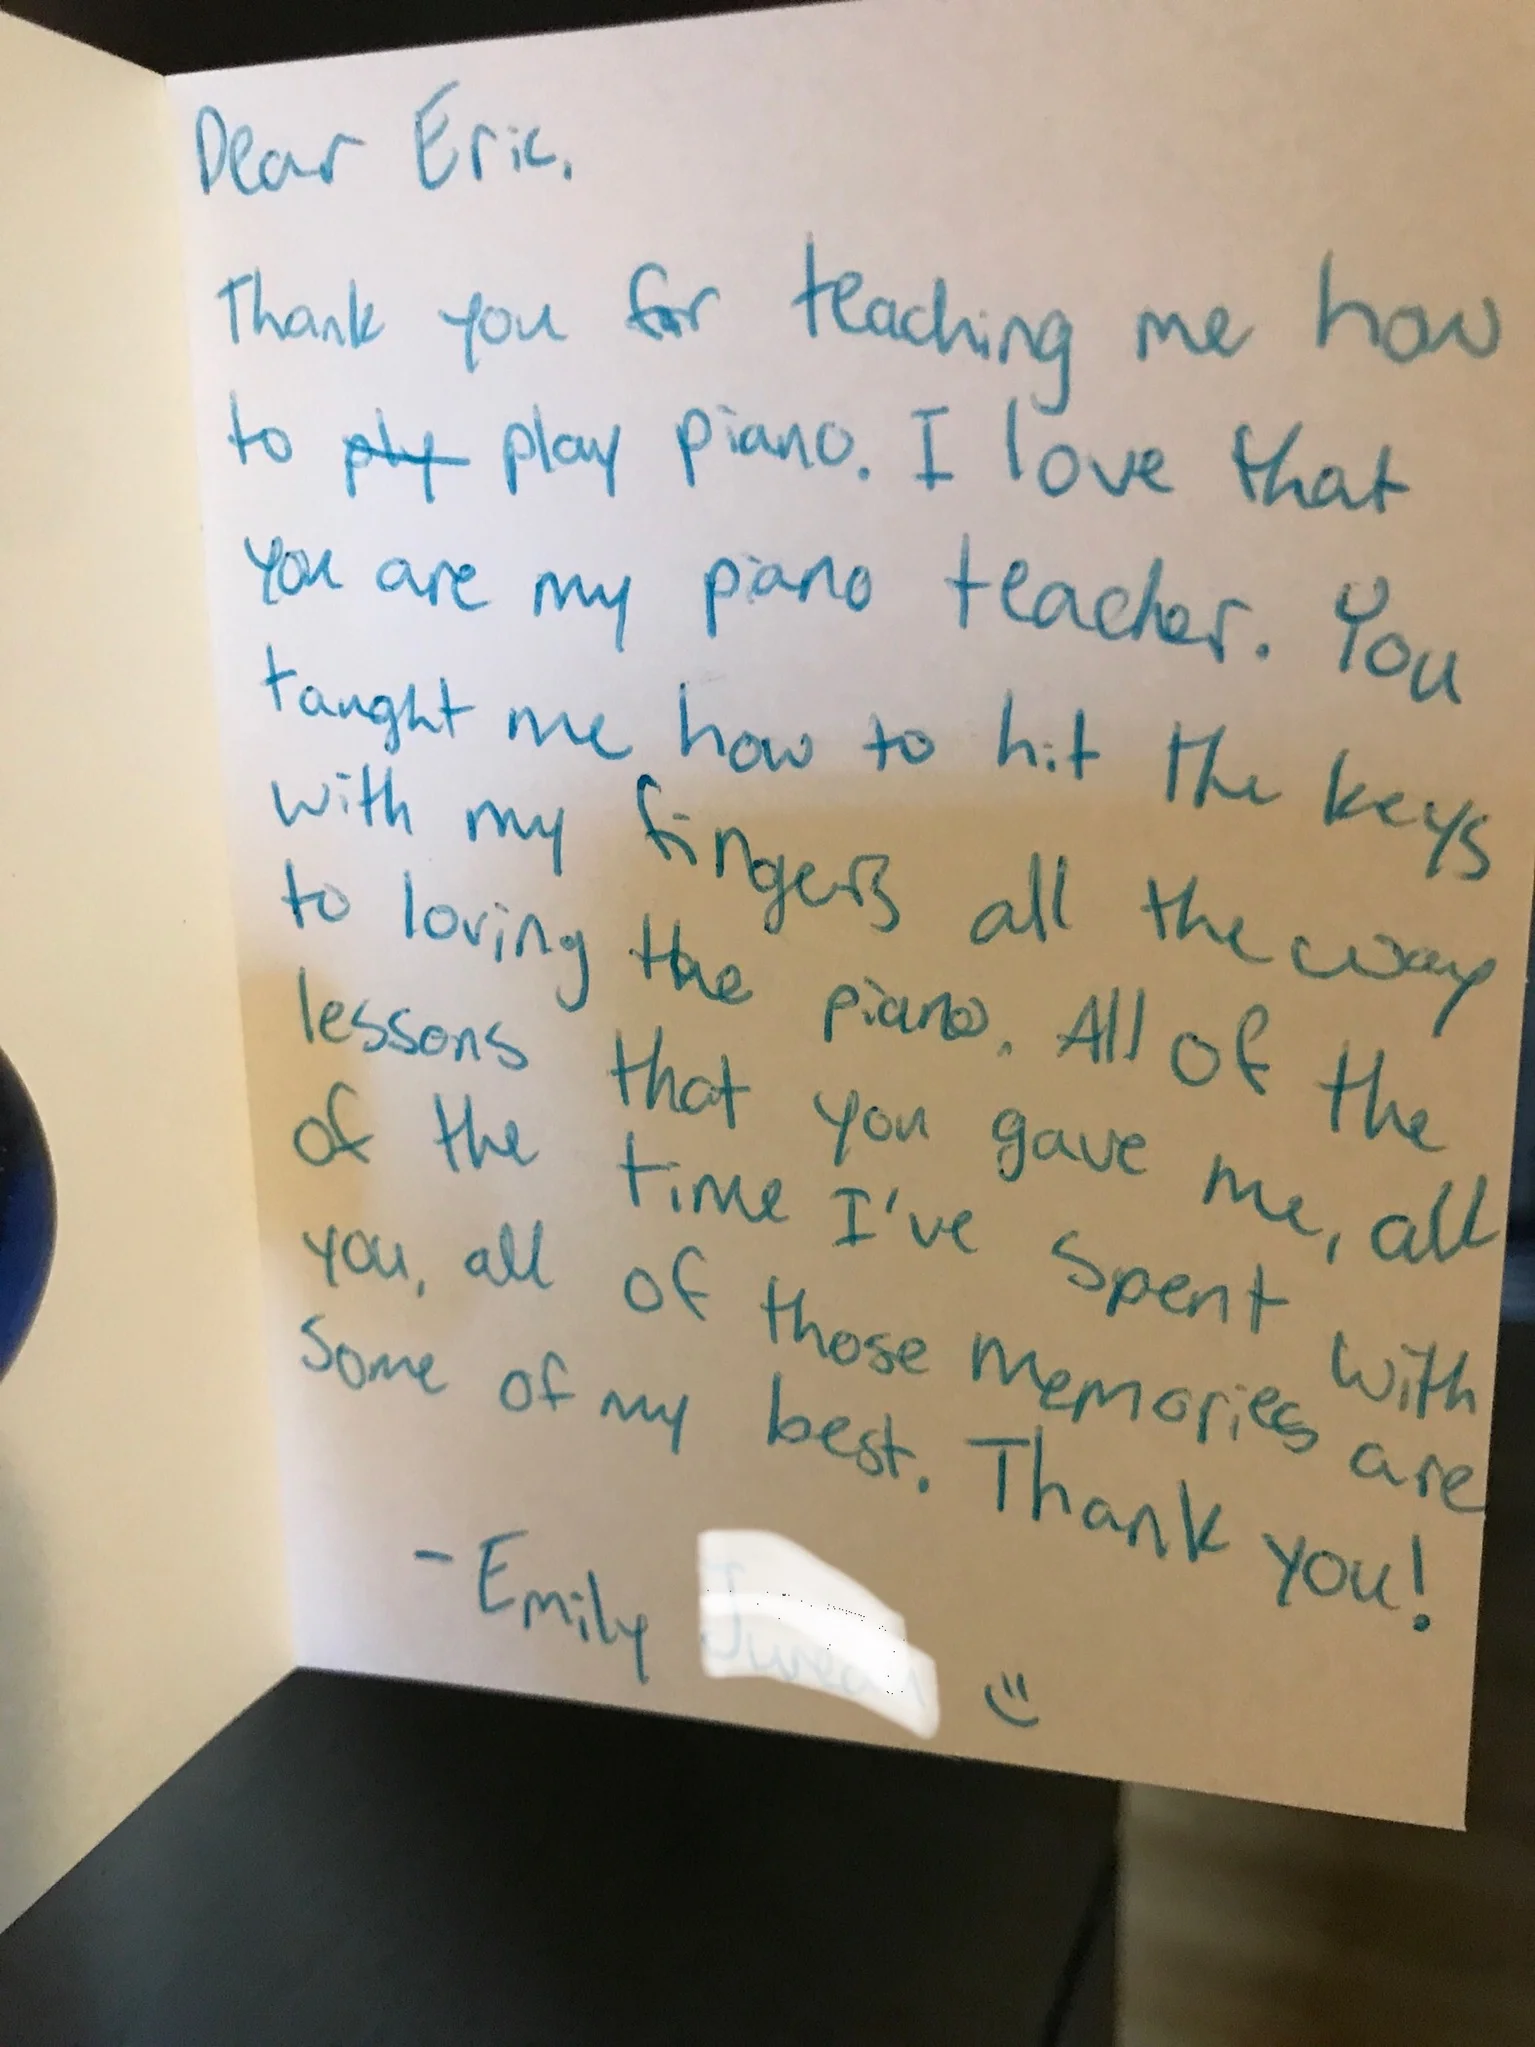 Dear Eric,
Thank you for teaching me how
to ply play piano. I love that
you are my piano teacher. You
taught me how to hit the keys
with my fingers all the way
to loving the piano. All of the
lessons that you gave me, all
of the time I've spent with
you, all of those memories are
some of my best. Thank you!
- Emily